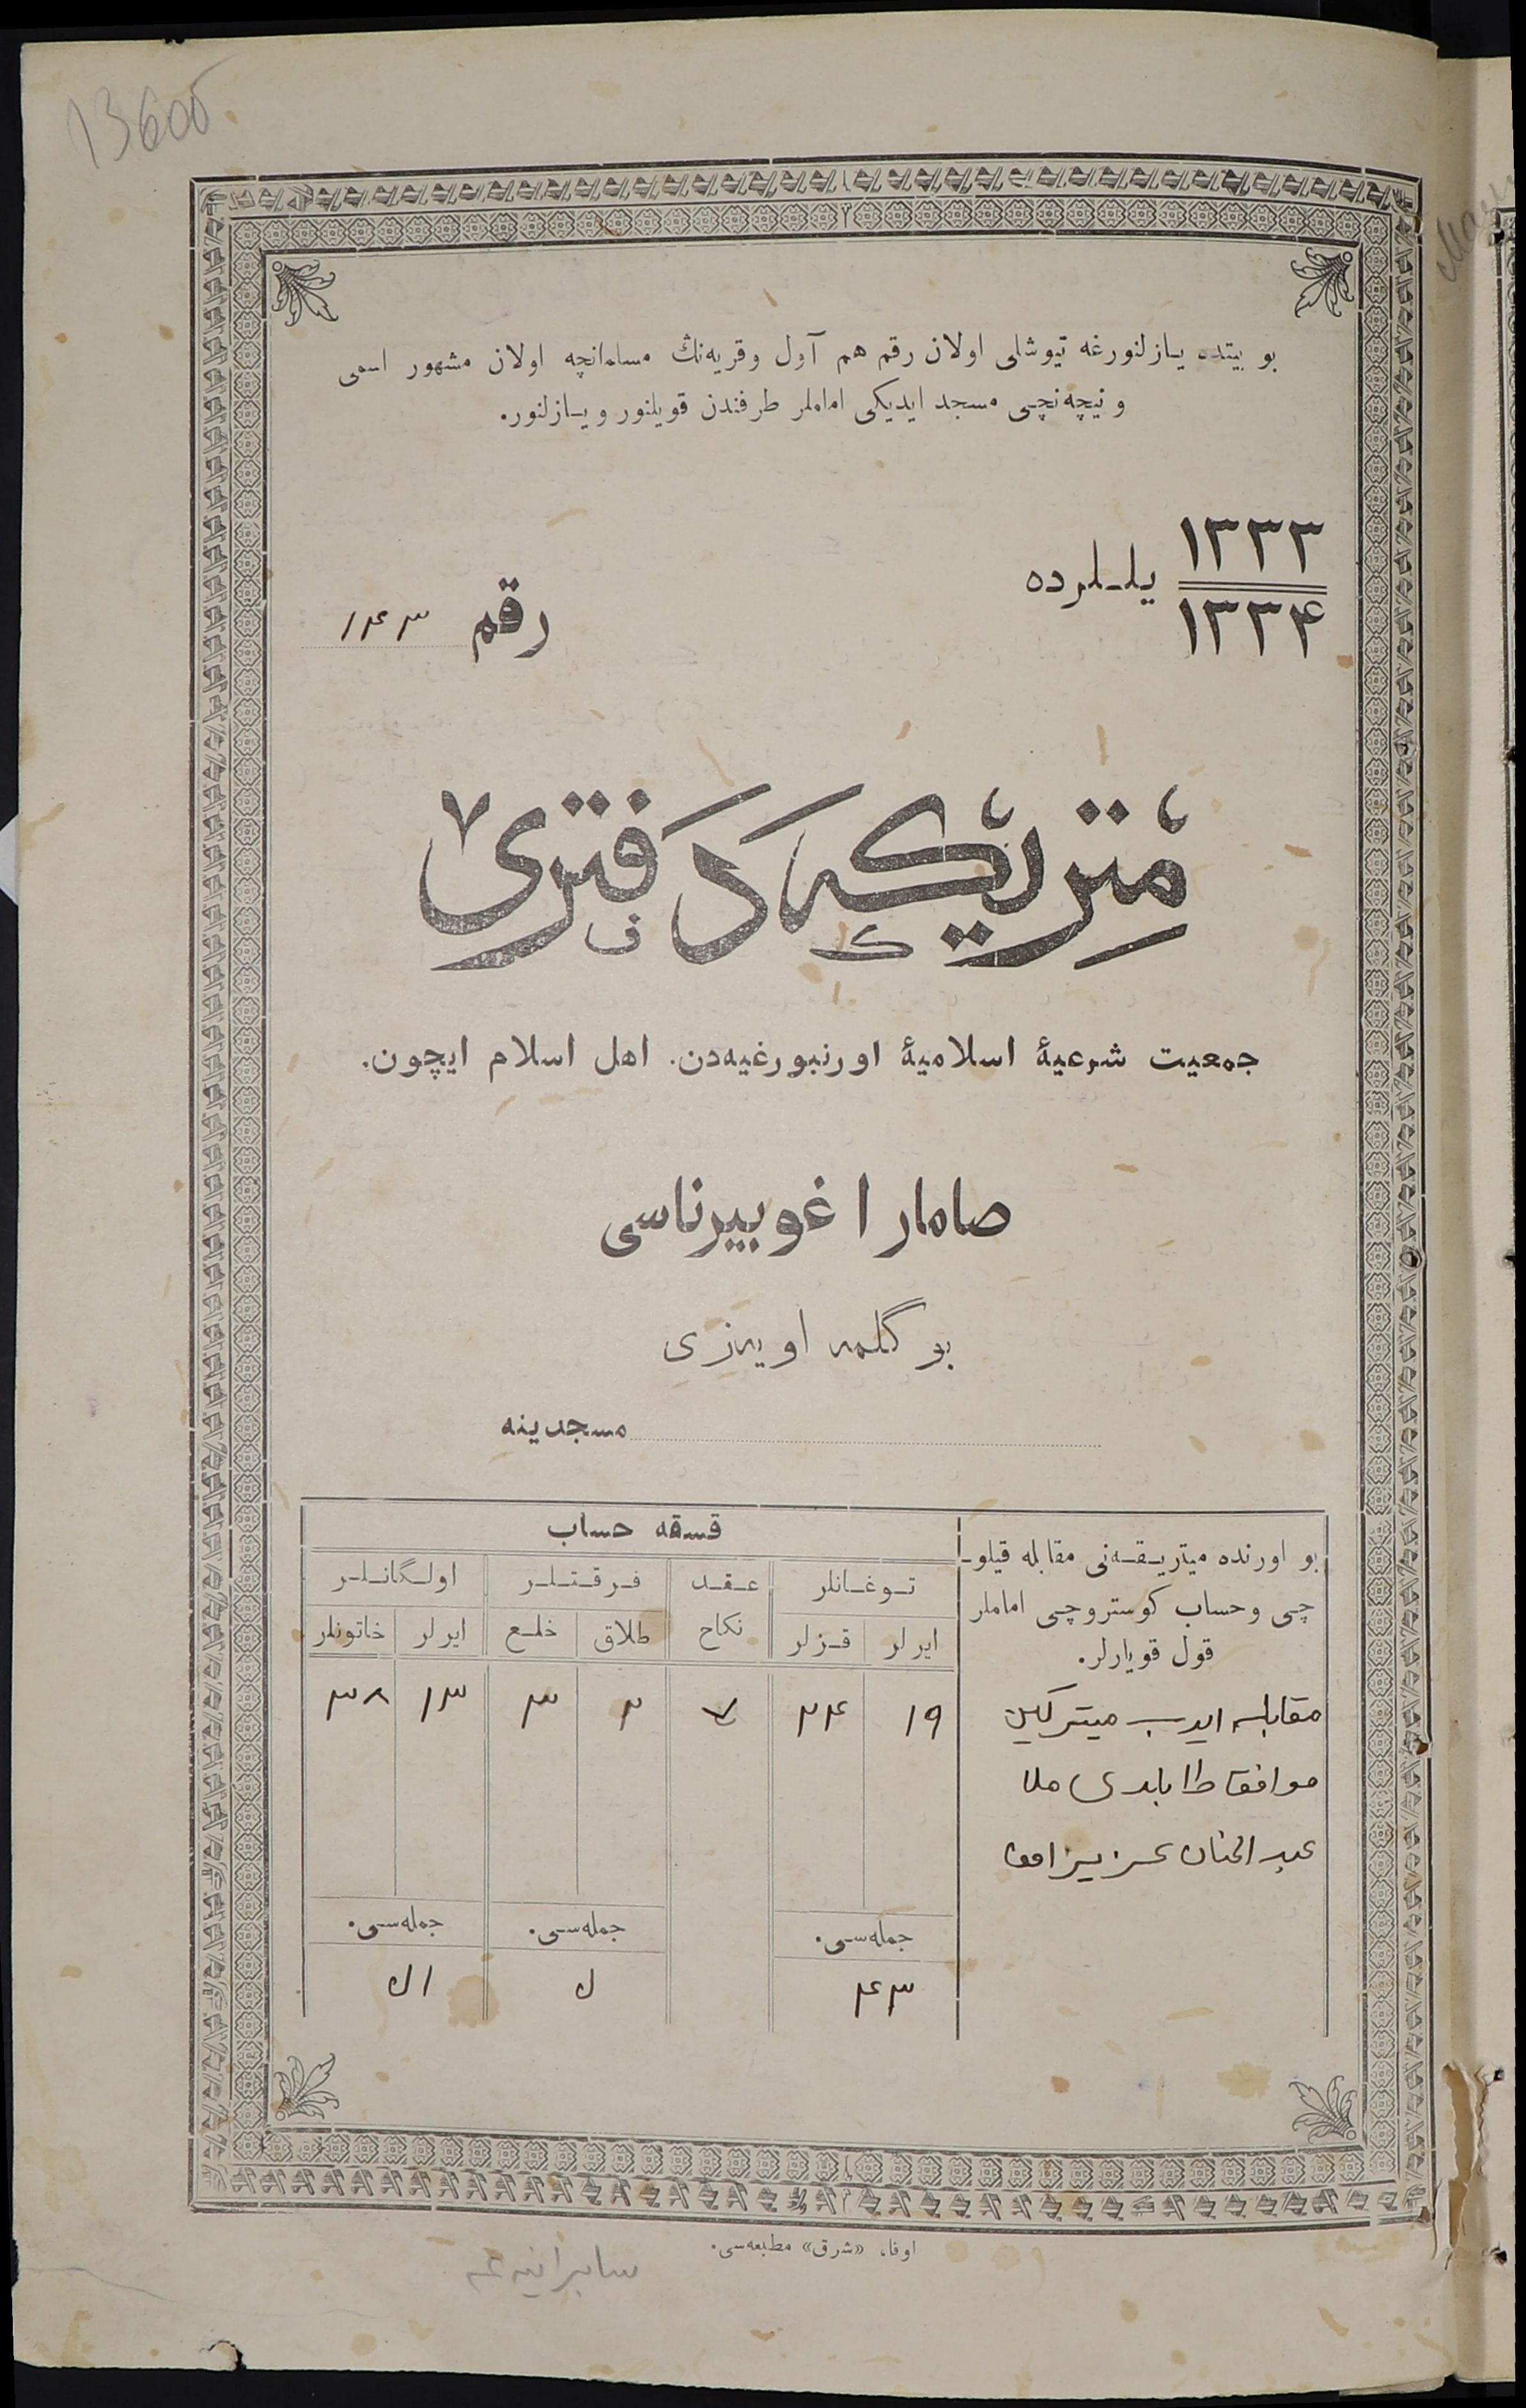 13600
بو بیتده یازلنورغه تیوشلی اولان رقم هم آول و قریه‌نڭ مسلمانچه اولان مشهور اسمی
و نیچه‌نچی مسجد ایدیکی اماملر طرفندن قویلنور و یازلنور.
۱۳۳۳
۱۳۳۴
یللرده
رقم ۱۴۳
متریكه دفتری
جمعیت شرعیهٔ اسلامیهٔ اورنبورغیه‌دن. اهل اسلام ایچون.
صامارا غوبیرناسی
بوگلمه اویه‌زی
مسجدینه
بو اورنده میتریقه‌نی مقابله قیلو-
چی و حساب کوستروچی اماملر
قول قویارلر.
قسقه حساب
توغانلر
عقد
نکاح
فرقتلر
اولگانلر
ایرلر
قزلر
طلاق
خلع
ایرلر
خاتونلر
مقابله ایدب
موافقا طابدی ملا
عبد الحنان
۱۹
۲۴
۷
۲
۳
۱۳
۳۸
جمله‌سی.
جمله‌سی.
جمله‌سی.
۴۳
۵
۵۱
اوفا، «شرق» مطبعه‌سی.